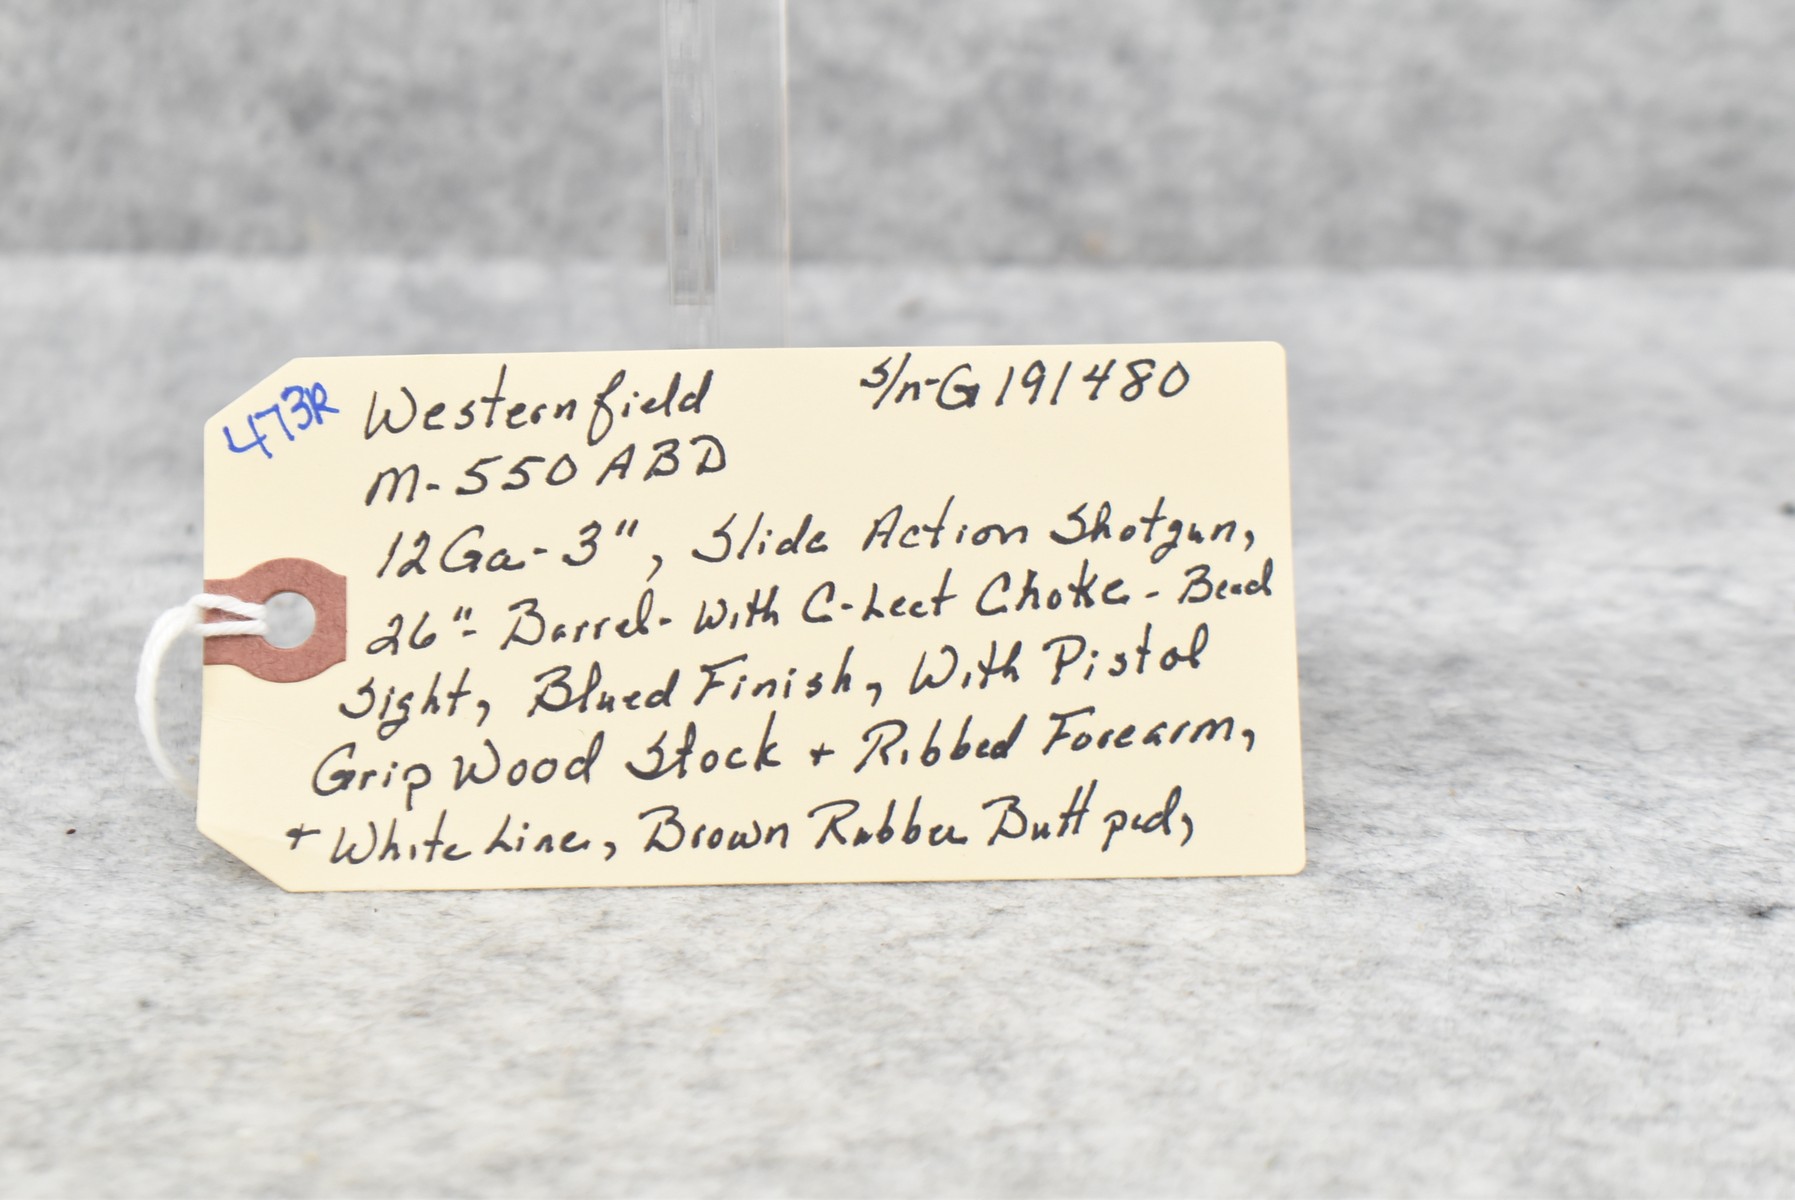 473R Westernfield S/n-G191480
M-550 ABD
12Ga-3", Slide Action Shotgun,
26"- Barrel- With C-Lect Choke - Bead
Sight, Blued Finish, With Pistol
Grip Wood Stock + Ribbed Forearm,
+ White Line, Brown Rubber Butt pad,